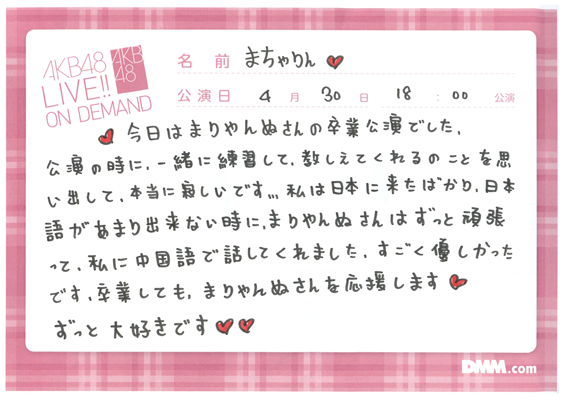 AKB48
LIVE!!
ON DEMAND
AKB
48
名前 まちゃりん
公演日 4月30日 18:00 公演
今日はまりやんぬさんの卒業公演でした.
公演の時に.一緒に練習して.教しえてくれるのことを思
い出して.本当に寂しいです,,, 私は日本に来たばかり.日本
語があまり出来ない時に.まりやんぬさんはずっと頑張
って.私に中国語で話してくれました.すごく優しかった
です.卒業しても.まりやんぬさんを応援します
ずっと大好きです
DMM.com